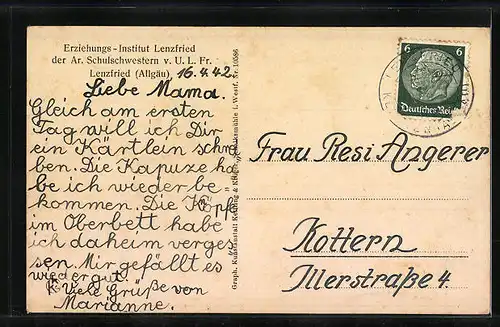 Erziehungs-Institut Lenzfried
der Ar. Schulschwestern v. U. L. Fr.
Lenzfried (Allgäu) 16.4.42
Liebe Mama.
Gleich am ersten
Tag will ich Dir
ein Kärtlein schrei
ben. Die Kapuze ha
be ich wieder be
kommen. Die Köpfe
im Oberbett habe
ich daheim verges
sen. Mir gefällt es
wieder gut.
Viele Grüße von
Marianne.
Graph. Kunstanstalt Kettling & Krüger, Schalksmühle i. Westf. Nr. 10586
6 6
Deutsches Reich
Frau Resi Angerer
Kottern
Illerstraße 4.